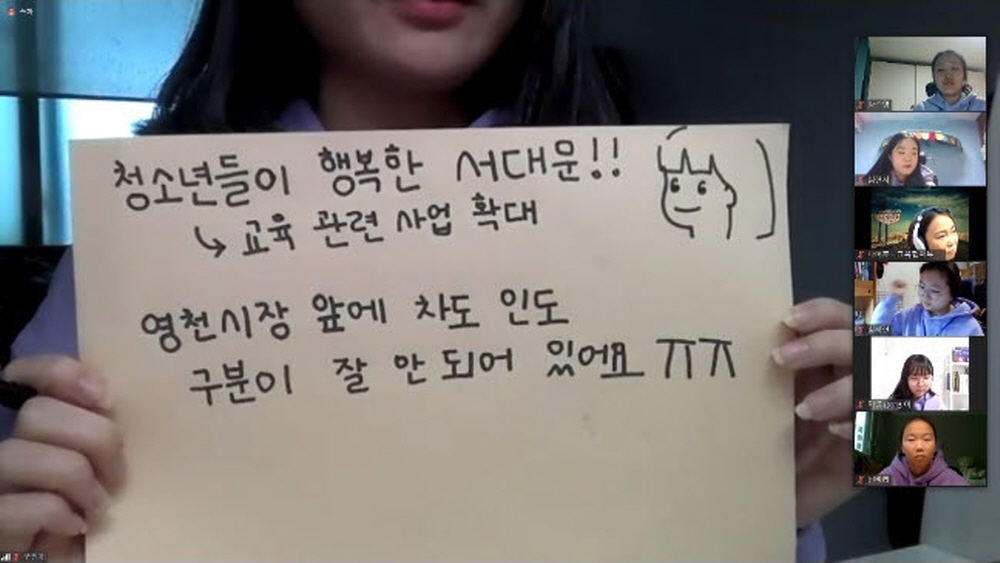 청소년들이 행복한 서대문!!
↳ 교육 관련 사업 확대
영천시장 앞에 차도 인도
구분이 잘 안 되어 있어요 ㅠㅠ